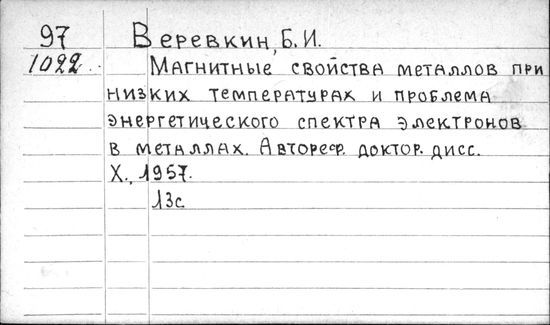 97 Веревкин, Б.И.
1022 Магнитные свойства металлов при
низких температурах и проблема
энергетического спектра электронов
в металлах. Автореф. доктор. дисс.
Х., 1957.
13с